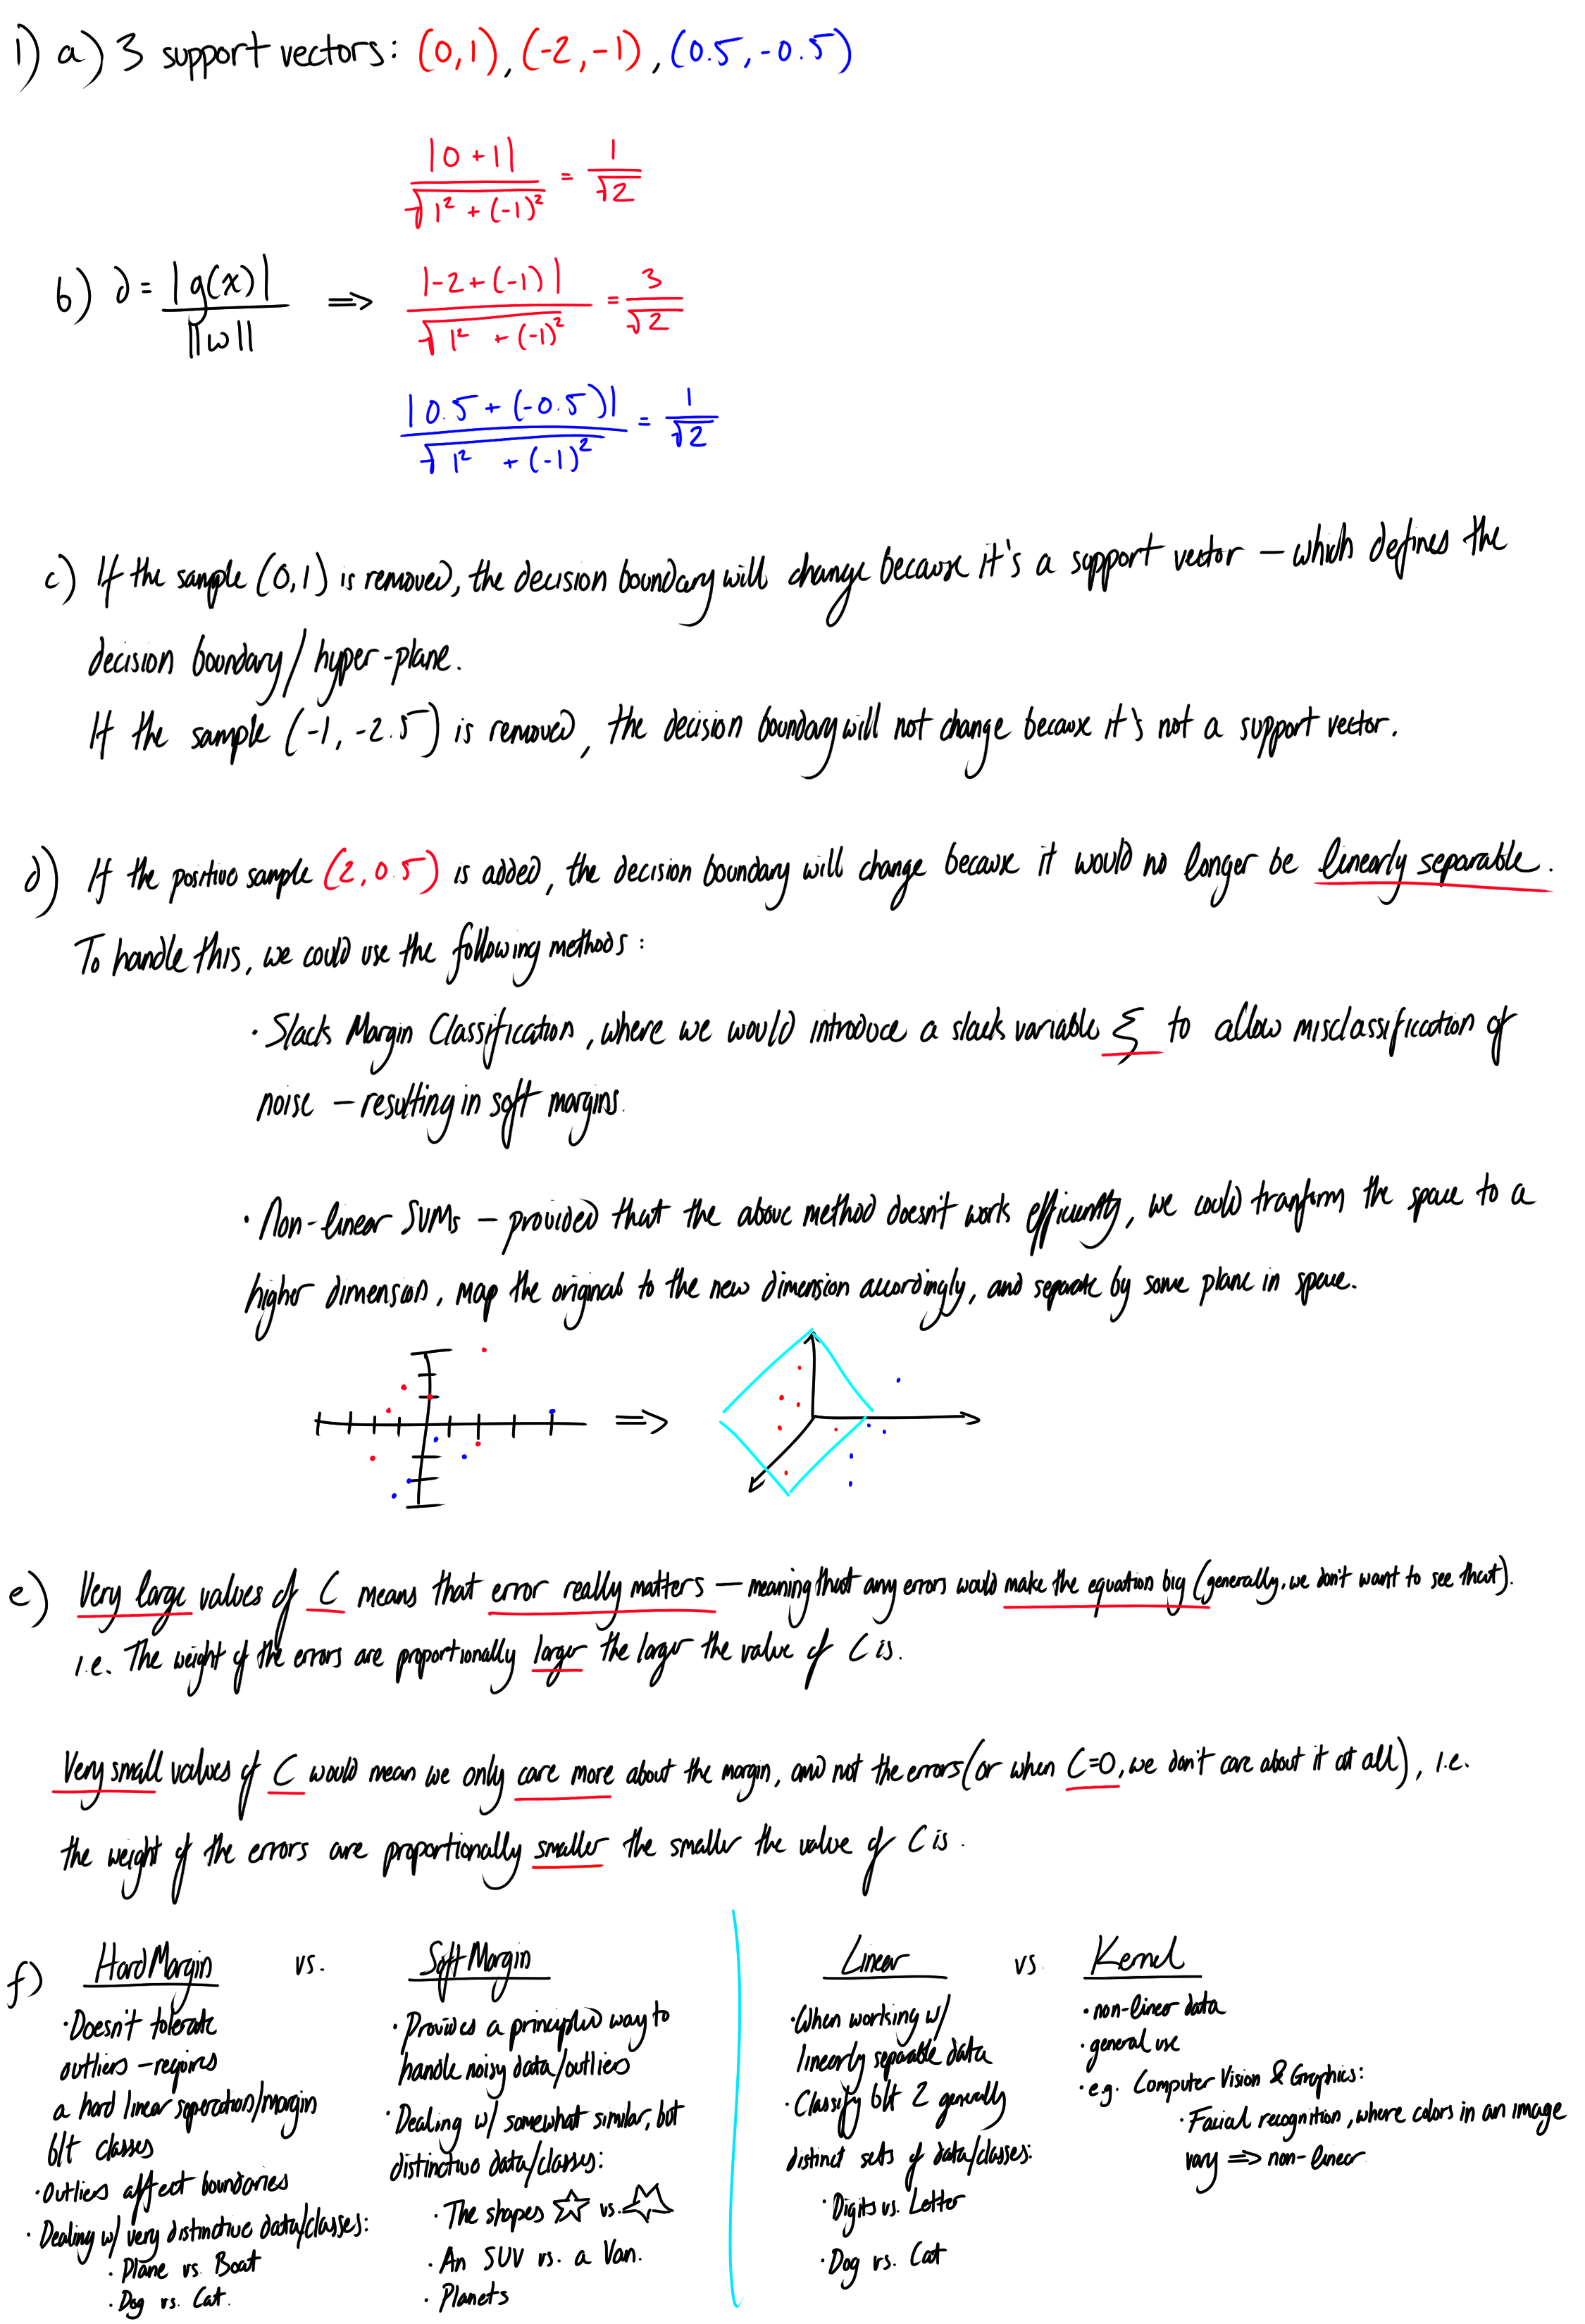 1) a) 3 support vectors: (0,1), (-2,-1), (0.5,-0.5)
|0 + 1| / √1² + (-1)² = 1/√2
b) d = |g(x)| / ||w|| ⟹ |-2 + (-1)| / √1² + (-1)² = 3/√2
|0.5 + (-0.5)| / √1² + (-1)² = 1/√2
c) If the sample (0,1) is removed, the decision boundary will change because it's a support vector – which defines the
decision boundary / hyper-plane.
If the sample (-1, -2.5) is removed, the decision boundary will not change because it's not a support vector.
d) If the positive sample (2, 0.5) is added, the decision boundary will change because it would no longer be linearly separable.
To handle this, we could use the following methods:
· Slack Margin Classification, where we would introduce a slack variable ξ to allow misclassification of
noise – resulting in soft margins.
· Non-linear SVMs – provided that the above method doesn't work efficiently, we could tranform the space to a
higher dimension, map the original to the new dimension accordingly, and separate by some plane in space.
⟹
e) Very large values of C means that error really matters – meaning that any errors would make the equation big (generally, we don't want to see that).
i.e. The weight of the errors are proportionally larger the larger the value of C is.
Very small values of C would mean we only care more about the margin, and not the errors (or when C=0, we don't care about it at all), i.e.
the weight of the errors are proportionally smaller the smaller the value of C is.
f) Hard Margin vs. Soft Margin
· Doesn't tolerate
outliers – requires
a hard linear seperation/margin
b/t classes
· Outliers affect boundaries
· Dealing w/ very distinctive data/classes:
· Plane vs. Boat
· Dog vs. Cat.
· Provides a principled way to
handle noisy data/outliers
· Dealing w/ somewhat similar, but
distinctive data/classes:
· The shapes ☆ vs.
· An SUV vs. a Van.
· Planets
Linear vs. Kernel
· When working w/
linearly separable data
· Classify b/t 2 generally
distinct sets of data/classes:
· Digits vs. Letter
· Dog vs. Cat
· non-linear data
· general use
· e.g. Computer Vision & Graphics:
· Facial recognition, where colors in an image
vary ⟹ non-linear